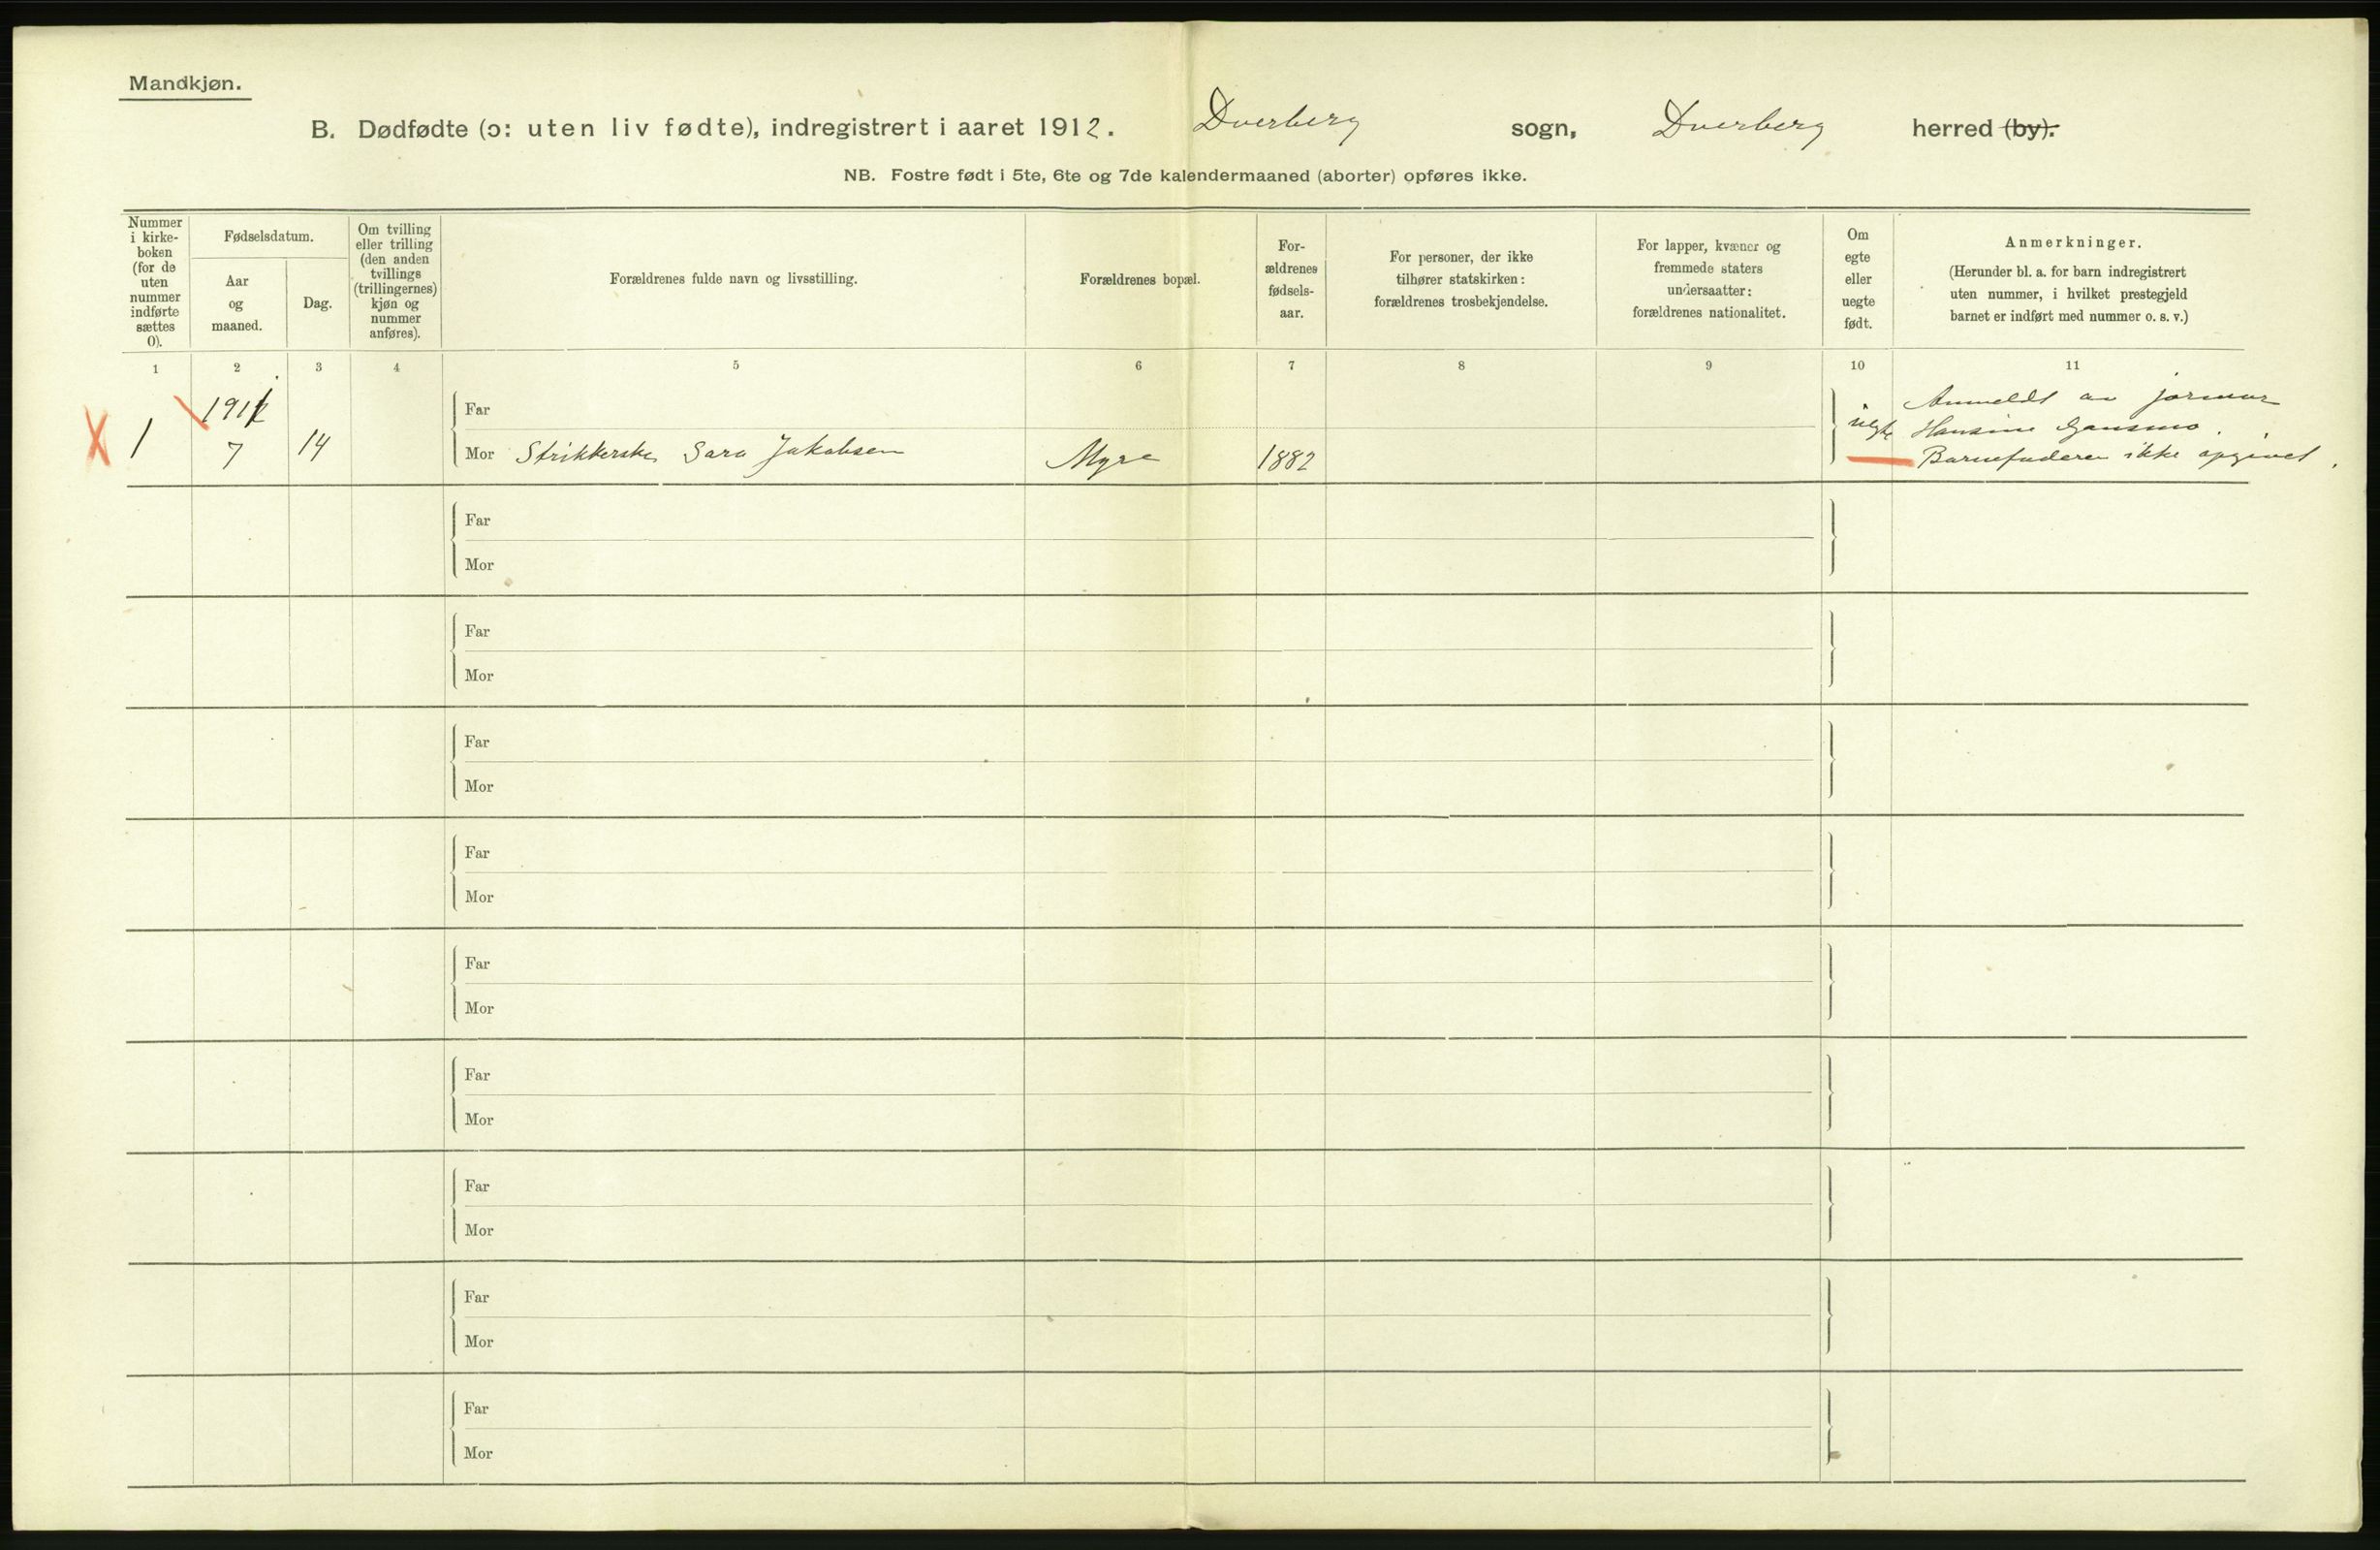 Mandkjøn.
B. Dødfødte (ɔ: uten liv fødte), indregistrert i aaret 1912. Dverberg sogn, Dverberg herred (by).
NB. Fostre født i 5te, 6te og 7de kalendermaaned (aborter) opføres ikke.
Nummer
i kirke-
boken
(for de
uten
nummer
indførte
sættes
0).
Fødselsdatum.
Aar
og
maaned.
Dag.
Om tvilling
eller trilling
(den anden
tvillings
(trillingernes)
kjøn og
nummer
anføres).
Forældrenes fulde navn og livsstilling.
Forældrenes bopæl.
For-
ældrenes
fødsels-
aar.
For personer, der ikke
tilhører statskirken:
forældrenes trosbekjendelse.
For lapper, kvæner og
fremmede staters
undersaatter:
forældrenes nationalitet.
Om
egte
eller
uegte
født.
Anmerkninger.
(Herunder bl. a. for barn indregistrert
uten nummer, i hvilket prestegjeld
barnet er indført med nummer o. s. v.)
1 2 3 4 5 6 7 8 9 10 11
Far
1 7 14 Mor Strikkerske Sara Jakobsen Myre 1882 uegte
Anmeldt av jormor
Hansine
Barnefaderen ikke opgivet.
Far
Mor
Far
Mor
Far
Mor
Far
Mor
Far
Mor
Far
Mor
Far
Mor
Far
Mor
Far
Mor